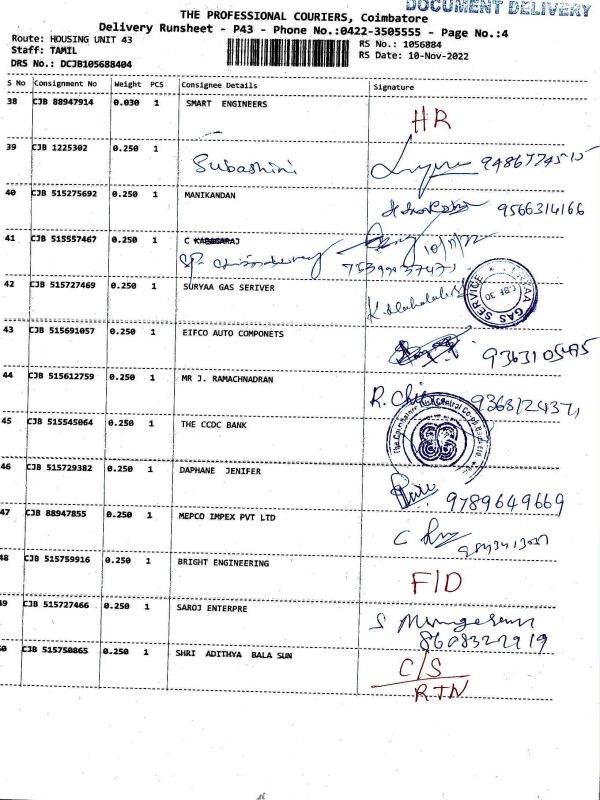 DOCUMENT DELIVERY
THE PROFESSIONAL COURIERS, Coimbatore
Delivery Runsheet - P43 - Phone No.:0422-3505555 - Page No.:4
Route: HOUSING UNIT 43
RS No.: 1056884
Staff: TAMIL
RS Date: 10-Nov-2022
DRS No.: DCJB105688404
S No Consignment No Weight PCS Consignee Details Signature
38 CJB 88947914 0.030 1 SMART ENGINEERS
HR
39 CJB 1225302 0.250 1
Subashini 9486774515
40 CJB 515275692 0.250 1 MANIKANDAN
9566314166
41 CJB 515557467 0.250 1 C KANAGARAJ
10/11/22
42 CJB 515727469 0.250 1 SURYAA GAS SERIVER
GAS SERVICE
CBE 30
43 CJB 515691057 0.250 1 EIFCO AUTO COMPONETS
9363105495
44 CJB 515612759 0.250 1 MR J. RAMACHNADRAN
R.
9368124371
45 CJB 515545064 0.250 1 THE CCDC BANK
The Coimbatore Central Co-op Bank Ltd.
46 CJB 515729382 0.250 1 DAPHANE JENIFER
9789649669
47 CJB 88947855 0.250 1 MEPCO IMPEX PVT LTD
C
48 CJB 515759916 0.250 1 BRIGHT ENGINEERING
F/D
49 CJB 515727466 0.250 1 SAROJ ENTERPRE
S
8608322919
50 CJB 515750865 0.250 1 SHRI ADITHYA BALA SUN
C/S
RTN